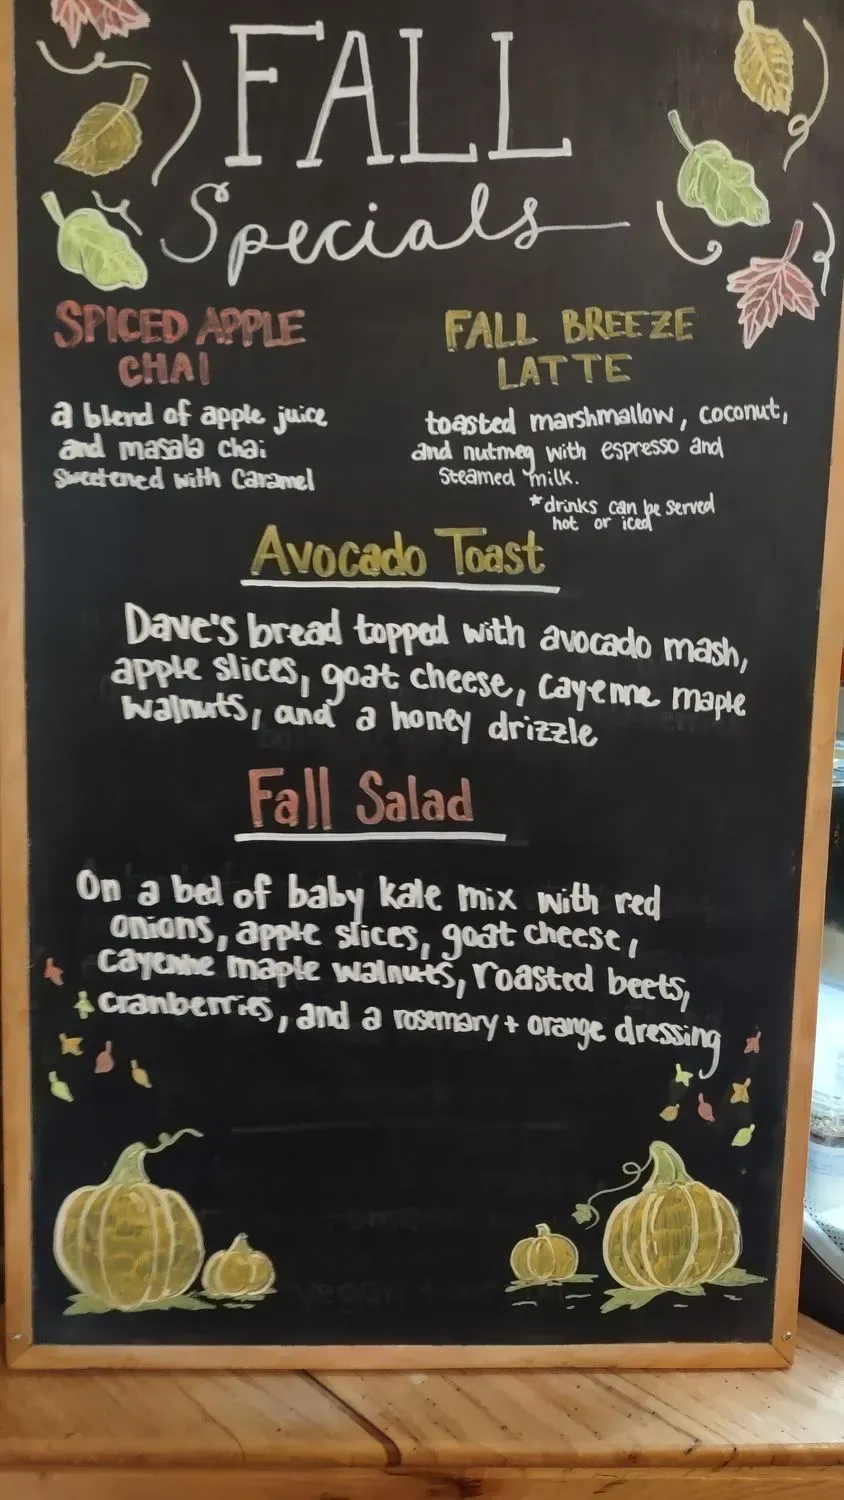 FALL
Specials
SPICED APPLE
CHAI
a blend of apple juice
and masala chai
sweetened with caramel
FALL BREEZE
LATTE
toasted marshmallow, coconut,
and nutmeg with espresso and
steamed milk.
*drinks can be served
hot or iced
Avocado Toast
Dave's bread topped with avocado mash,
apple slices, goat cheese, cayenne maple
walnuts, and a honey drizzle
Fall Salad
On a bed of baby kale mix with red
onions, apple slices, goat cheese,
cayenne maple walnuts, roasted beets,
cranberries, and a rosemary + orange dressing